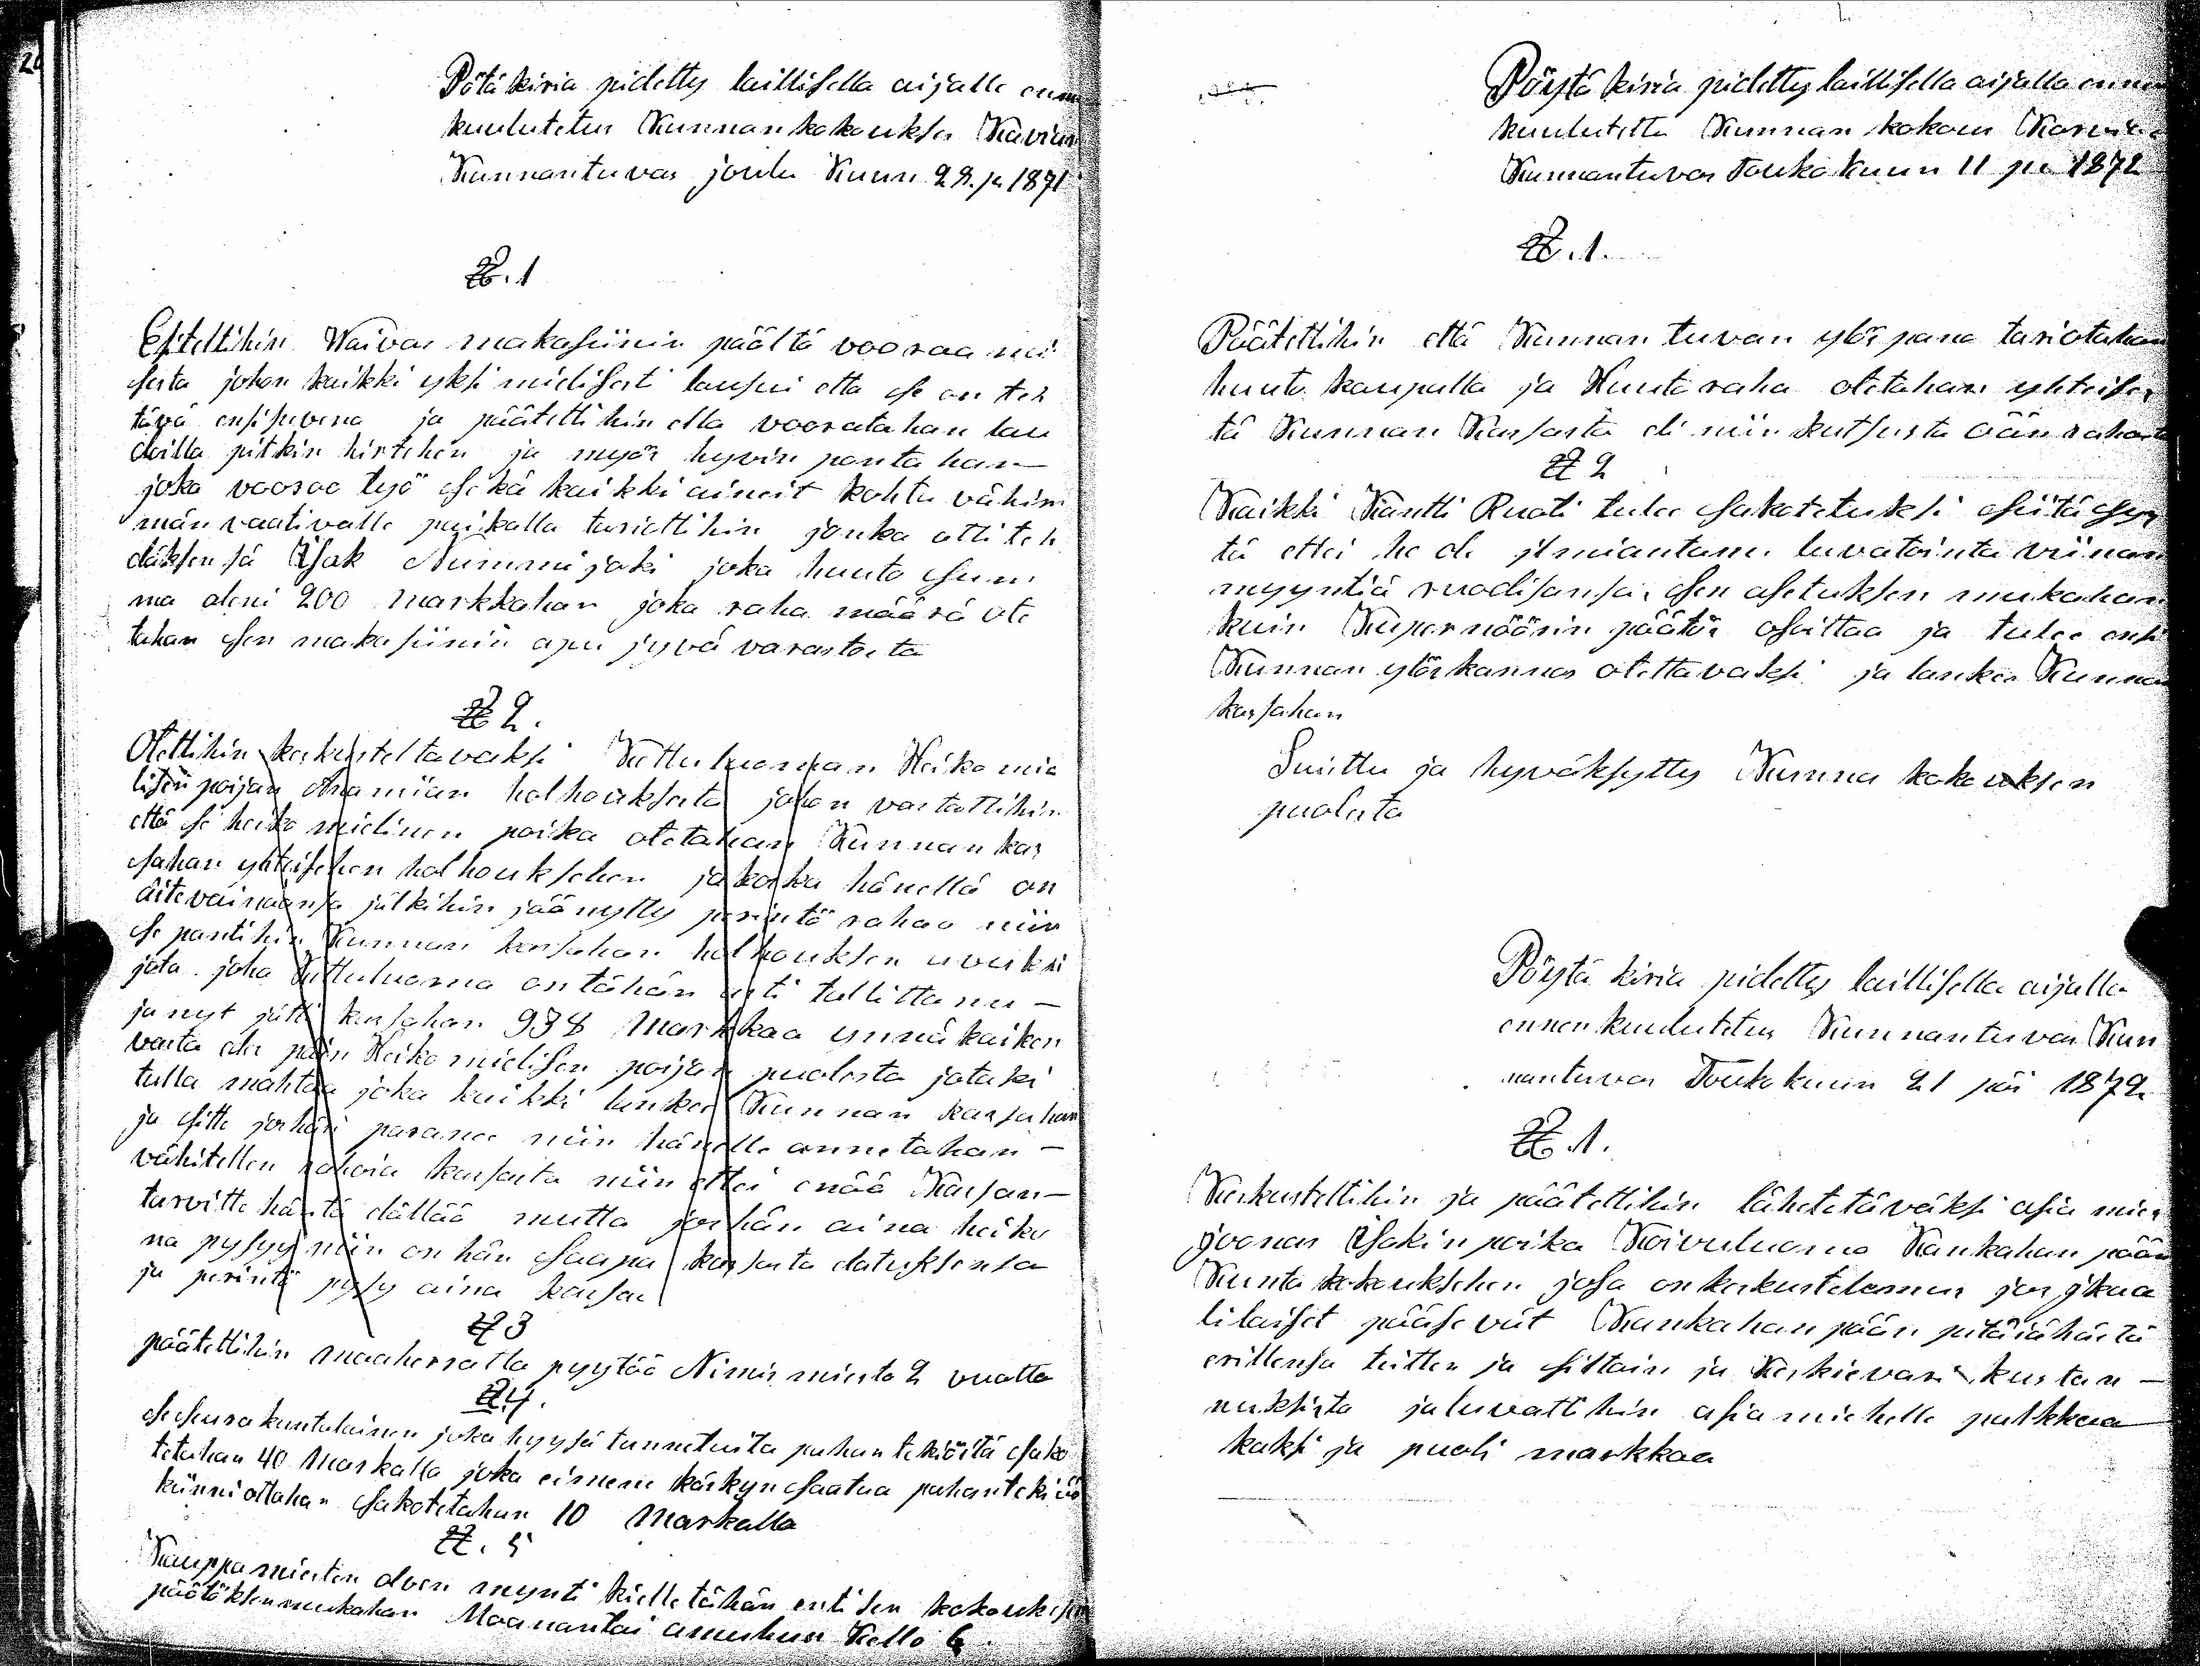 Pötäkiria pidetty laillisella aijalle enn
kuulutetus Kunnankokouksen Kavian
Kunnantuvas joulu Kuun 28. p 1871
§. 1
Esiteltihin Waivas makasiinin päältä vooraamis
sesta johon kaikki yksimielisesti lausui että se on teh
tävä ensisuvena ja päätettihin että vooratahan lau
doilla pitkin hirtehen ja myös hyvin pantahan
joka vooraa työ sekä kaikki aineit kohta vähim
män vaativalle paikalla tariottihin jonka otti teh
däksensä Isak Nummijoki joka huuto sum
ma aleni 200 markkahan joka raha määrä ote
tahan sen makasiinin apu jyvä varastosta
§ 2.
Otettihin keskusteltavaksi Kuttuluoman Heikomie
lisen poijan Anamian holhouksesta johon vastattihin
että se heiko mielinen poika otetahan Kunnan kas
sahan yhteisehen holhouksehen ja koska hänellä on
äitevainaansa jälkihin jäänytty perintö rahaa niin
se pantihin Kunnan kassahan holhouksen avuiksi
jota joha Kuttuluoma on tähän asti tallittanu –
ja nyt jätti kassahan 938 Markkaa ynnä kaiken
vasta eles päin Heikomielisen poijan puolesta jotaki
tulla mahtaa joka kaikki lankee Kunnan kassahan
ja sitte jos hän paranee niin hänelle annetahan –
vähitellen rahoia kassasta niin ettei enää Kassan –
tarvitte häntä elättää mutta jos hän aina heiko
na pysyy niin on hän saapa kassasta elatuksensa
ja perintö pysy aina kassas
§ 3
päätettihin maaherralta pyytää Nimismiestä 2 vuatta
§ 4.
se seurakuntalainen joka hyysä tunnetuita pahantekiöitä sako
tetahan 40 Markalla joka ei mene käskyn saatua pahantekiiö
kiinniottahan sakotetahan 10 Markalla
§. 5
Kauppamiesten oluen mynti kielletähän entisen kokouksen
päätöksen mukahan Maanantai amuhun Kello 6.
Pöytä kiria pidetty laillisella aijalla ennen
kuulutettu Kunnan kokous Karvian
Kunnantuvas Toukokuun 11 p 1872
§. 1.
Päätettihin että Kunnan tuvan ylöspano tariotahan
huuto kaupalla ja Huuto raha otetahan yhteises
tä Kunnan Kassasta eli niin kutsusta äänrahasta
§ 2
Kaikki Kantti Ruati tulee sakotetuksi siitä syys
tä ettei he ole ilmiantanu luvatointa viinan
myyntiä ruodisansa, sen asetuksen mukahan
kuin Kupernöörin päätös osoittaa ja tulee ensi
Kunnan ylöskannos otettavaksi ja lankee Kunnan
kassahan
Luittu ja hyväksytty Kunnan kokouksen
puolesta
Pöytä kiria pidetty laillisella aijalla
ennen kuulutetus Kunnantuvas Kun
nantuvas Toukokuun 21 päi 1872.
§. 1.
Keskusteltihin ja päätettihin lähetetäväksi asia mies
joonas Isakin poika Koivuluoma Kankahan pään
Kunta kokouksehen josa on keskustelemus jos ikaa
lilaiset pääsevät Kankahanpään pitäiähästä
erillensä teitten ja siltain ja Keskievari kustan –
nuksista ja luvattihin asiamiehelle palkkaa
kaksi ja puoli markkaa